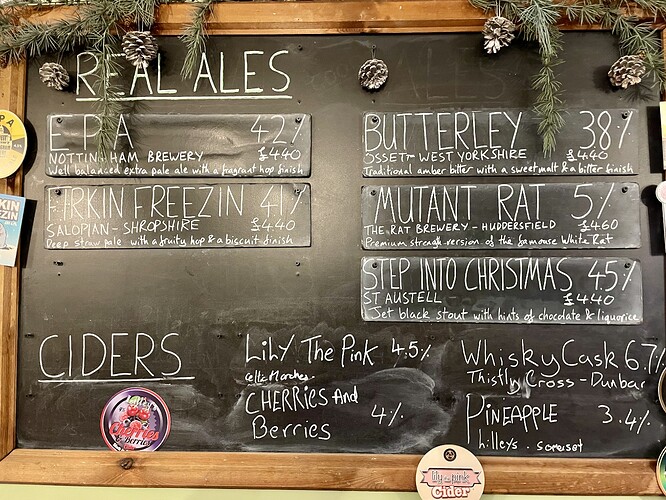 REAL ALES
EPA 42%
NOTTINGHAM BREWERY £440
Well balanced extra pale ale with a fragrant hop finish
FIRKIN FREEZIN 41%
SALOPIAN - SHROPSHIRE £440
Deep straw pale with a fruity hop & a biscuit finish
BUTTERLEY 38%
OSSETT WEST YORKSHIRE £440
Traditional amber bitter with a sweet malt & a bitter finish
MUTANT RAT 5%
THE RAT BREWERY - HUDDERSFIELD £460
Premium strength version of the famouse White Rat
STEP INTO CHRISTMAS 45%
ST AUSTELL £440
Jet black stout with hints of chocolate & liquorice
CIDERS
LiLY The Pink 4.5%
Celtic Marches.
CHERRIES And
Berries 4%
Whisky Cask 6.7%
Thistly Cross - Dunbar
PINEAPPLE 3.4%
Lilleys. Somerset
Cherries
& Berries
lily the pink
cider